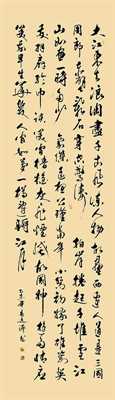 大江東去浪淘盡千古風流人物故壘西邊人道是三國
周郎赤壁亂石穿空驚濤拍岸捲起千堆雪江
山如畫一時多少豪傑遙想公瑾當年小喬初嫁了雄姿英
發羽扇綸巾談笑間檣櫓灰飛煙滅故國神遊多情應
笑我早生華髮人如夢一樽還酹江月